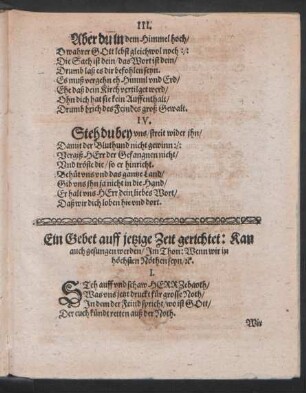 III.
Aber du in dem Himmel hoch/
O wahrer GOtt lebst gleichwol noch :/:
Die Sach ist dein/das Wort ist dein/
Drumb laß es dir befohlen seyn.
Es muß vergehn eh Himmel vnd Erd/
Ehe daß dein Kirch vertilget werd/
Ohn dich hat sie kein Auffenthalt/
Drumb brich des Feindes groß Gewalt.
IV.
Steh du bey vns/streit wider ihn/
Damit der Bluthund nicht gewinn :/:
HErr der Gefangnen nicht/
Vnd tröste die/so er hinricht.
Behüt vns vnd das gantze Land/
Gib vns ihn ja nicht in die Hand/
Erhalt vns HErr dein liebes Wort/
Daß wir dich loben hie vnd dort.
Ein Gebet auff jetzige Zeit gerichtet: Kan
auch gesungen werden/ Im Thon: Wenn wir in
höchsten Nöthen seyn/ꝛc.
I.
STeh auff vnd schaw HERR Zebaoth/
Was vns jetzt druckt für grosse Noth/
In dem der Feind spricht/wo ist GOtt/
Der euch köndt retten auß der Noth.
Wie